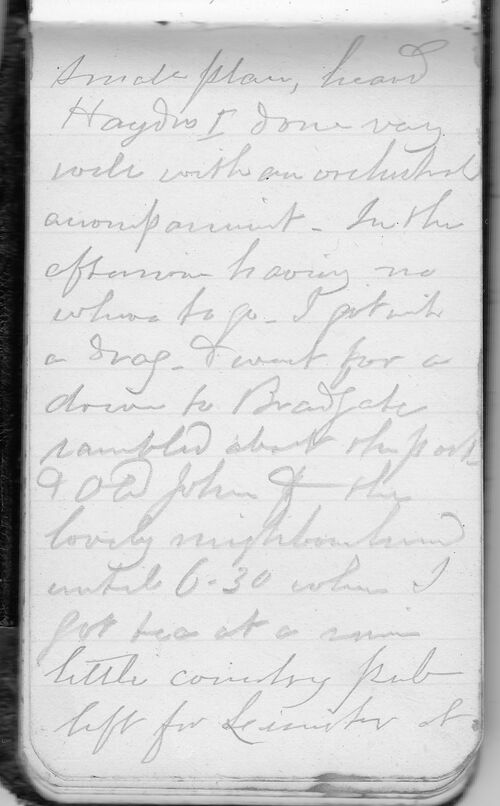 plan, heard
Haydns I done very
well with an orchestral
acompaniment - In the
afternoon having no
where to go - I got into
a drag - & went for a
drive to Bradgate
rambled about the park
& Old John & the
lovely neighbourhood
until 6-30 when I
got tea at a nice
little country pub
left for Leicester at